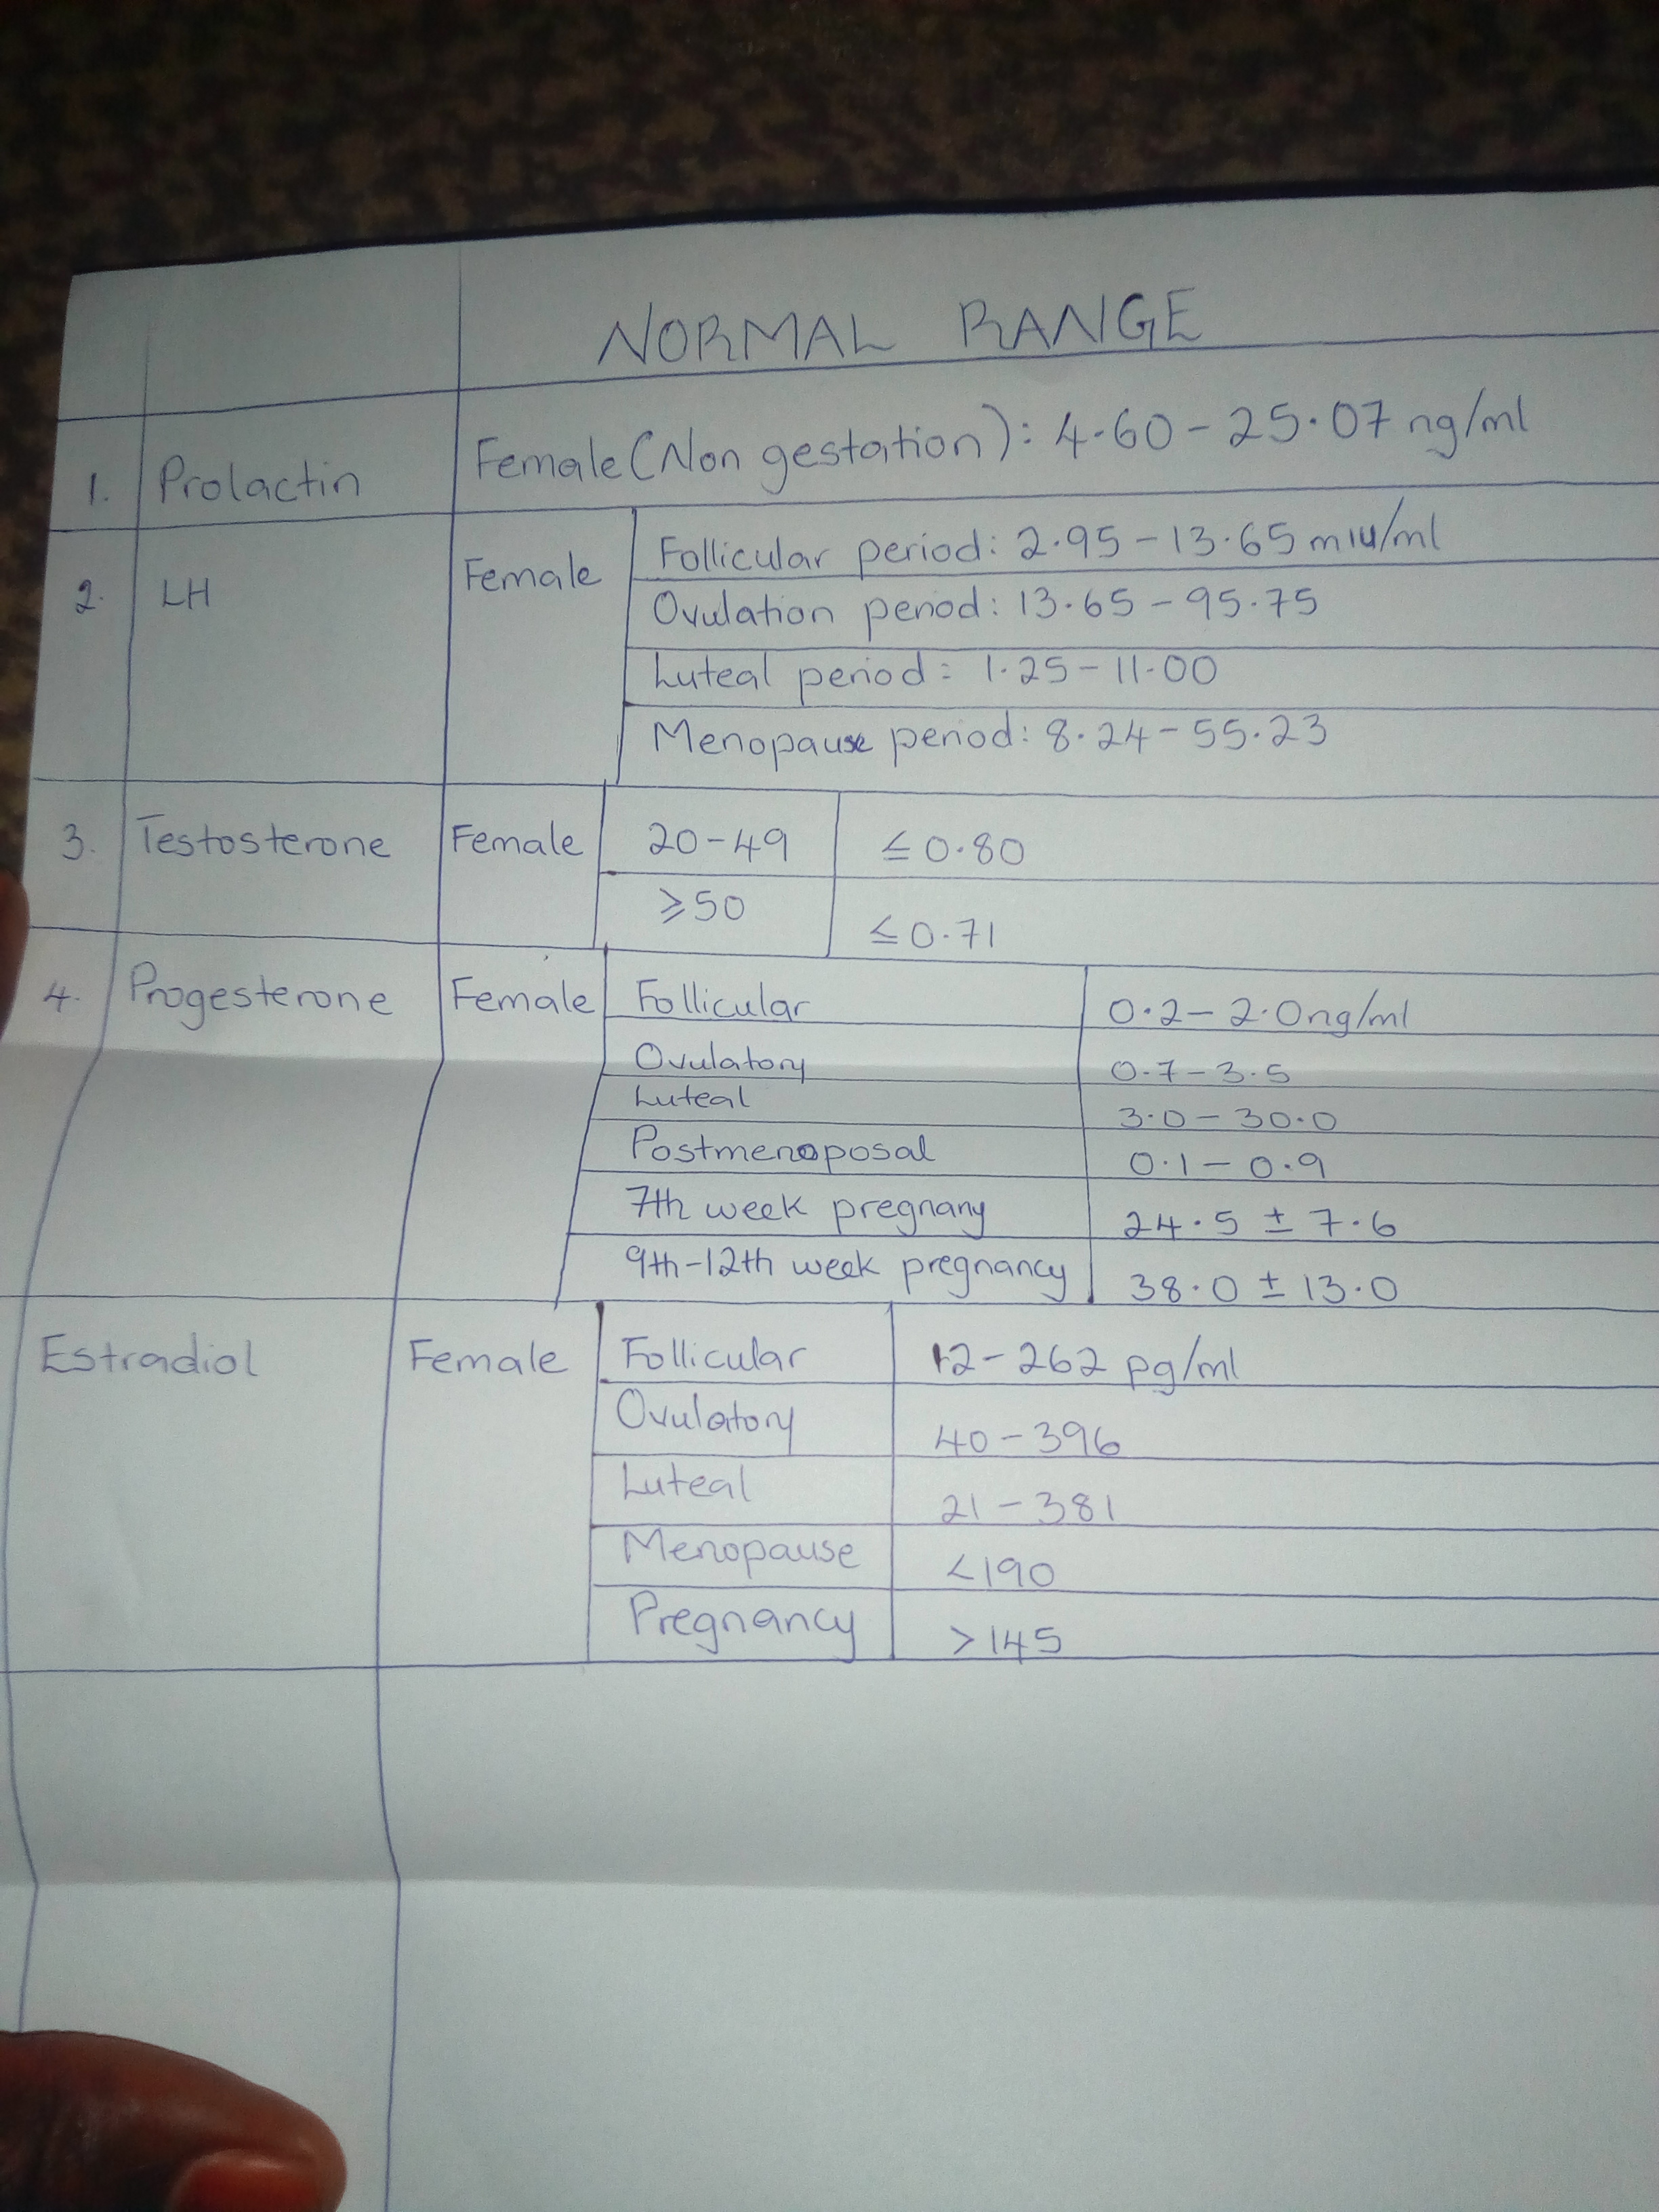 NORMAL RANGE
1. Prolactin Female (Non gestation): 4.60 - 25.07 ng/ml
2. LH Female Follicular period: 2.95 - 13.65 mIU/ml
Ovulation period: 13.65 - 95.75
Luteal period: 1.25 - 11.00
Menopause period: 8.24 - 55.23
3. Testosterone Female 20-49 ≤ 0.80
≥50 ≤ 0.71
4. Progesterone Female Follicular 0.2 - 2.0 ng/ml
Ovulatory 0.7 - 3.5
Luteal 3.0 - 30.0
Postmenoposal 0.1 - 0.9
7th week pregnany 24.5 ± 7.6
9th-12th week pregnancy 38.0 ± 13.0
Estradiol Female Follicular 12-262 pg/ml
Ovulatory 40 - 396
Luteal 21 - 381
Menopause <190
Pregnancy >145